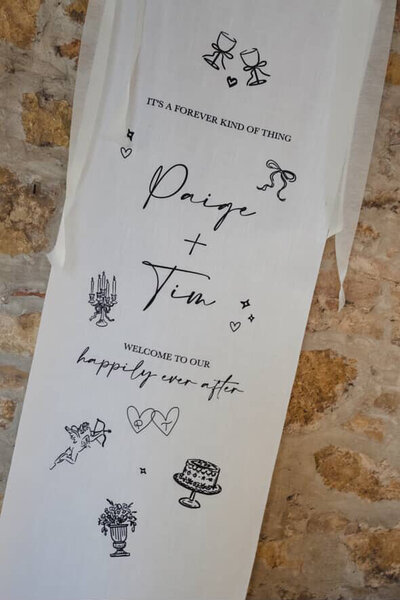 IT'S A FOREVER KIND OF THING
Paige
+
Tim
WELCOME TO OUR
happily ever after